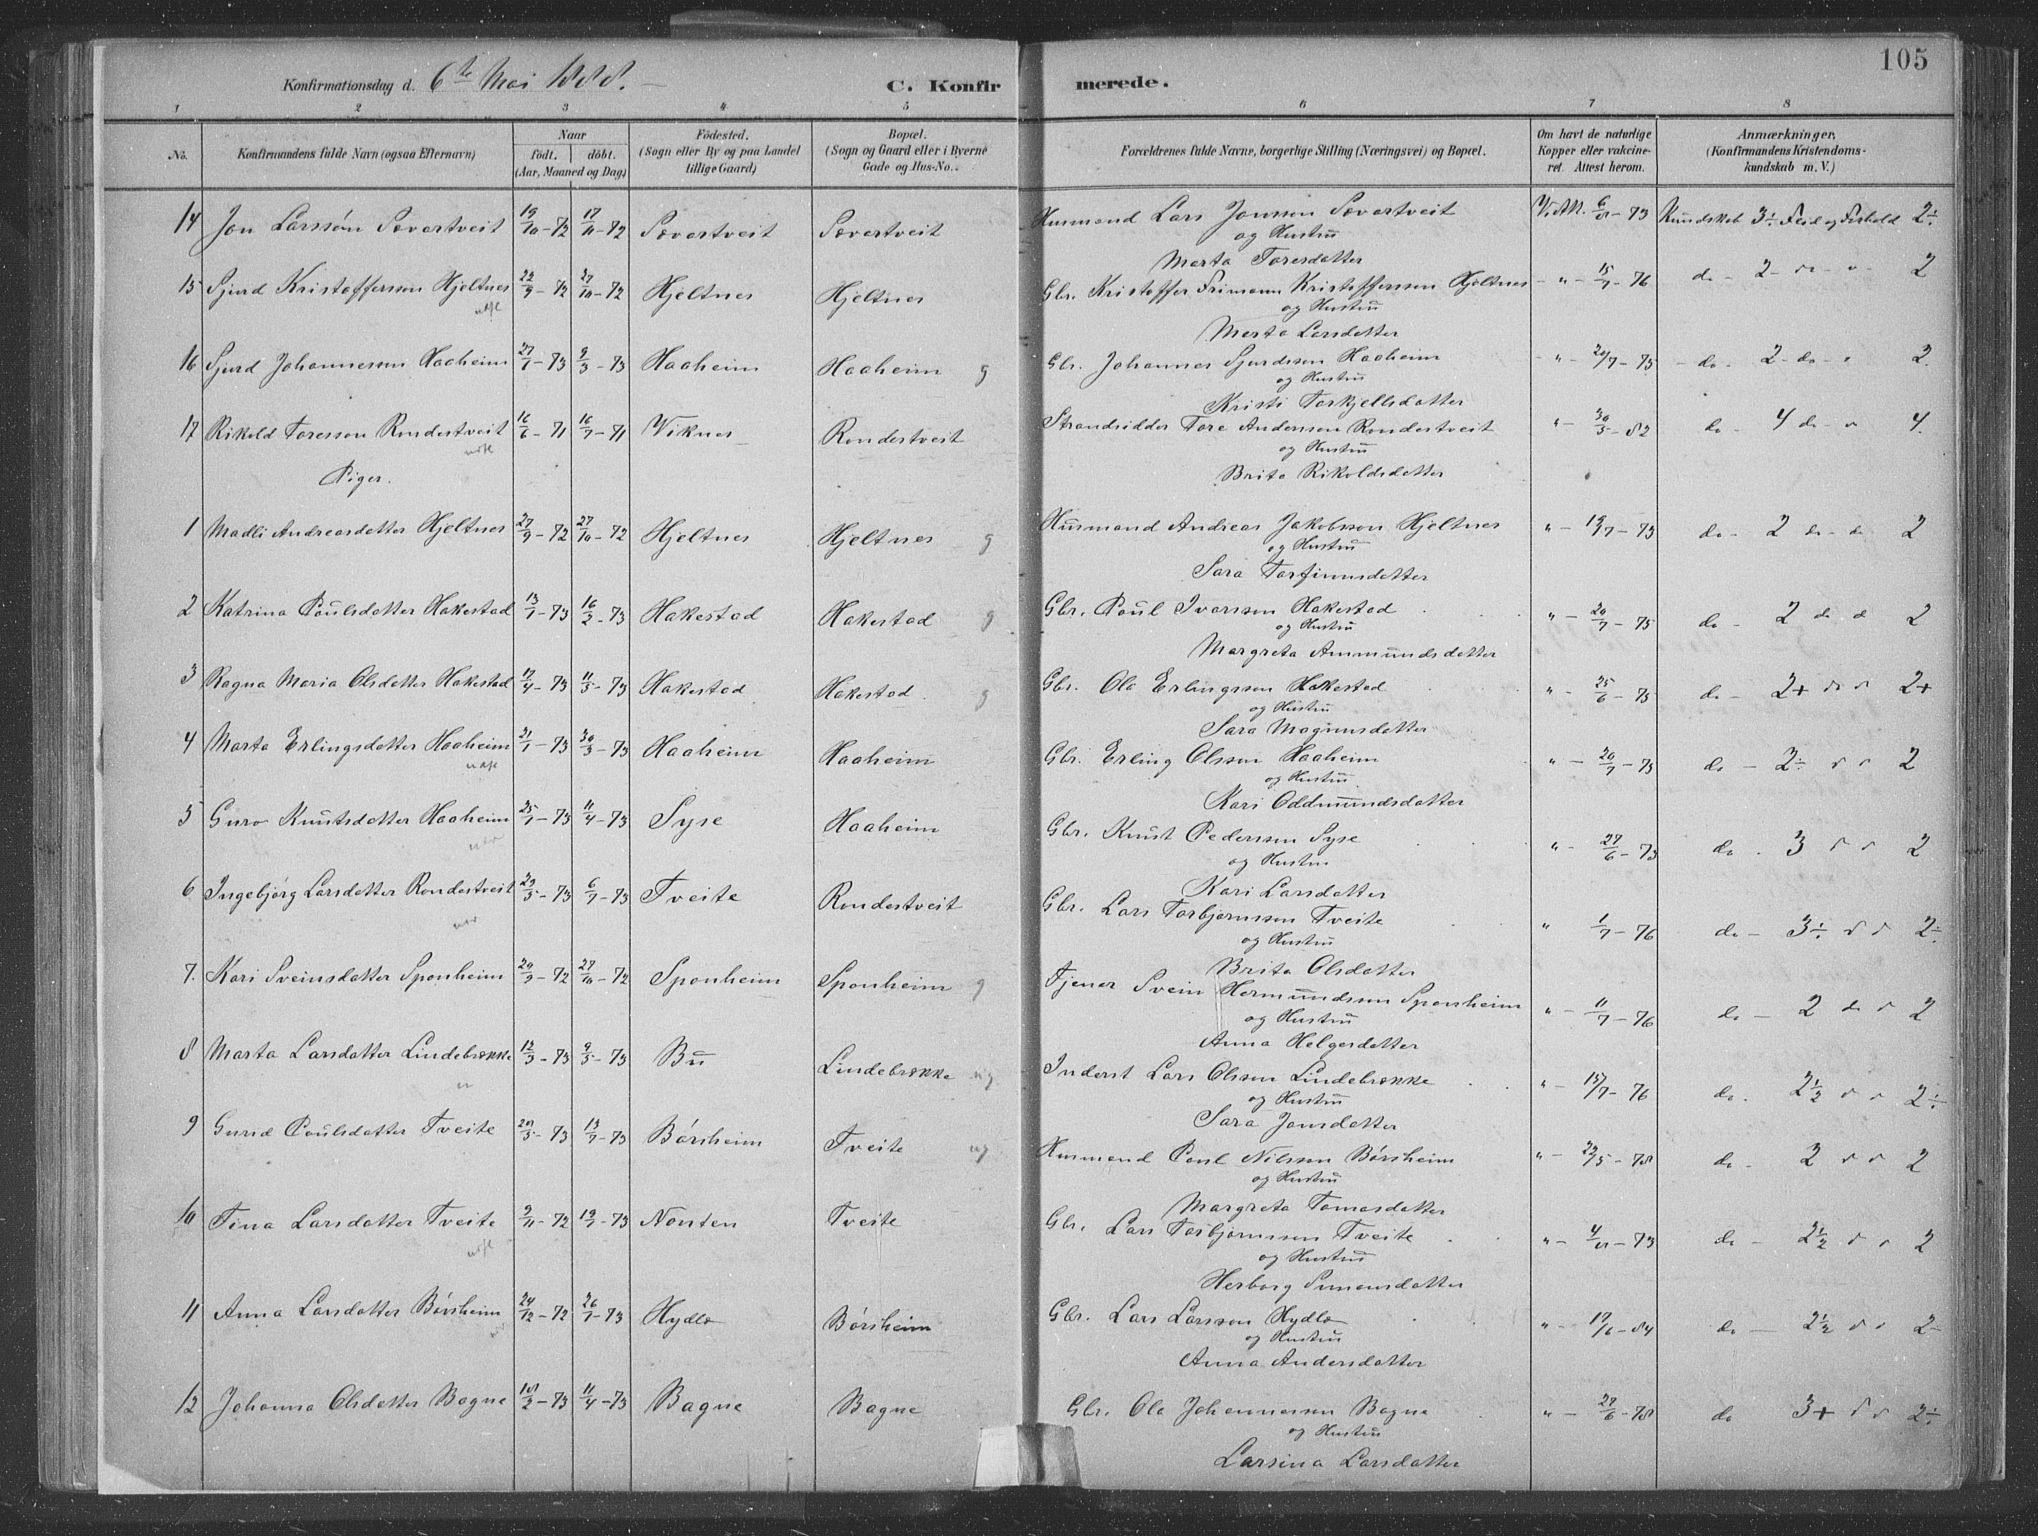 105
Konfirmationsdag d. 6te Mai 1888. —
C. Konfirmerede.
1 2 3 4 5 6 7 8
No. Konfirmandens fulde Navn (ogsaa Efternavn) Naar födt. döbt. (Aar, Maaned og Dag) Födested. (Sogn eller By og paa Landet tillige Gaard) Bopæl. (Sogn og Gaard eller i Byerne Gade og Hus-No.. Forældrenes fulde Navne, borgerlige Stilling (Næringsvei) og Bopæl. Om havt de naturlige Kopper eller vakcineret. Attest herom. Anmærkninger. (Konfirmandens Kristendomskundskab m. V.)
14 Jon Larssøn Sævartveit 19/10-72 17/11-72 Sævartveit Sævartveit Husmand Lars Jonsson Sævartveit V. Att. 6/8-73 Kundskab 3÷ Flid og Forhold 2÷
og Hustru
Marta Toresdatter
15 Sjurd Kristoffersson Hjeltnes 22/9-72 27/10-72 Hjeltnes Hjeltnes Gbr. Kristoffer Frimann Kristoffersson Hjeltnes " - 15/7-76 do - 2 - 2
og Hustru
Marta Larsdatter
16 Sjurd Johannessen Haaheim 27/1-73 9/3-73 Haaheim Haaheim g Gbr. Johannes Sjurdsson Haaheim " - 20/7-75 do - 2 - do - 2
og Hustru
Kristi Torkjellsdatter
17 Rikold Toresson Rondestveit 16/6-71 16/7-71 Viknes Rondestveit Strandsidder Tore Andersson Rondestveit " - 30/5-82 do - 4 do 4.
og Hustru
Brita Rikoldsdatter
Piger.
1 Madli Andreasdatter Hjeltnes 27/9-72 27/10-72 Hjeltnes Hjeltnes g Husmand Andreas Jakobsson Hjeltnes " - 19/7-73 do - 2 do - do 2
og Hustru
Sara Torfinnsdatter
2 Katrina Poulsdatter Hakestad 13/1-73 16/2-73 Hakestad Hakestad g Gbr. Poul Ivarsson Hakestad " - 20/7-75 do - 2 do 2
og Hustru
Margreta Ammundsdatter
3 Ragna Maria Olsdatter Hakestad 17/4-73 11/5-73 Hakestad Hakestad. g Gbr. Ola Erlingsson Hakestad " - 25/6-75 do - 2+ 2+
og Hustru
Sara Magnusdatter
4 Marta Erlingsdatter Haaheim 21/1-73 30/3-73 Haaheim Haaheim Gbr. Erling Olsson Haaheim " - 20/7-75 do - 2÷ 2
og Hustru
Kari Oddmundsdatter
5 Guro Knutsdatter Haaheim 25/1-73 11/4-73 Syse Haaheim Gbr. Knut Pedersson Syse " - 27/6-73 do - 3 2
og Hustru
Kari Larsdatter
6 Ingebjørg Larsdatter Rondestveit 29/5-73 6/7-73 Tveite Rondestveit Gbr. Lars Torbjørnsson Tveite " 1/7-76 do - 3÷ 2÷
og Hustru
Brita Olsdatter
7. Kari Sveinsdatter Sponheim 20/9-72 27/10-72 Sponheim Sponheim g Tjener Svein Hermundsson Sponheim " - 11/7-76 do - 2 do 2
og Hustru
Anna Helgesdatter
8 Marta Larsdatter Lindebrække 12/3-73 9/5-73 Bu Lindebrække ug Inderst Lars Olsson Lindebrække " - 15/7-76 do. 2½ 2÷
og Hustru
Sara Jonsdatter
9 Gurid Poulsdatter Tveite 28/5-73 13/7-73 Børsheim Tveite ug Husmand Poul Nilsson Børsheim " - 23/5-78 do - 2 2
og Hustru
Margreta Tomasdatter
10 Tina Larsdatter Tveite 9/11-72 19/1-73 Nonten Tveite Gbr. Lars Torbjørnsson Tveite " - 4/8-73 do - 2½ 2
og Hustru
Herborg Simonsdatter
11 Anna Larsdatter Børsheim 24/12-72 26/1-73 Hydle Børsheim Gbr. Lars Larsson Hydle " - 17/6-84 do - 2½ 2-
og Hustru
Anna Andersdatter
12 Johanna Olsdatter Bagne 18/2-73 11/4-73 Bagne Bagne Gbr. Ola Johannesson Bagne " - 27/6-78 do 3+ 2÷
og Hustru
Larsina Larsdatter